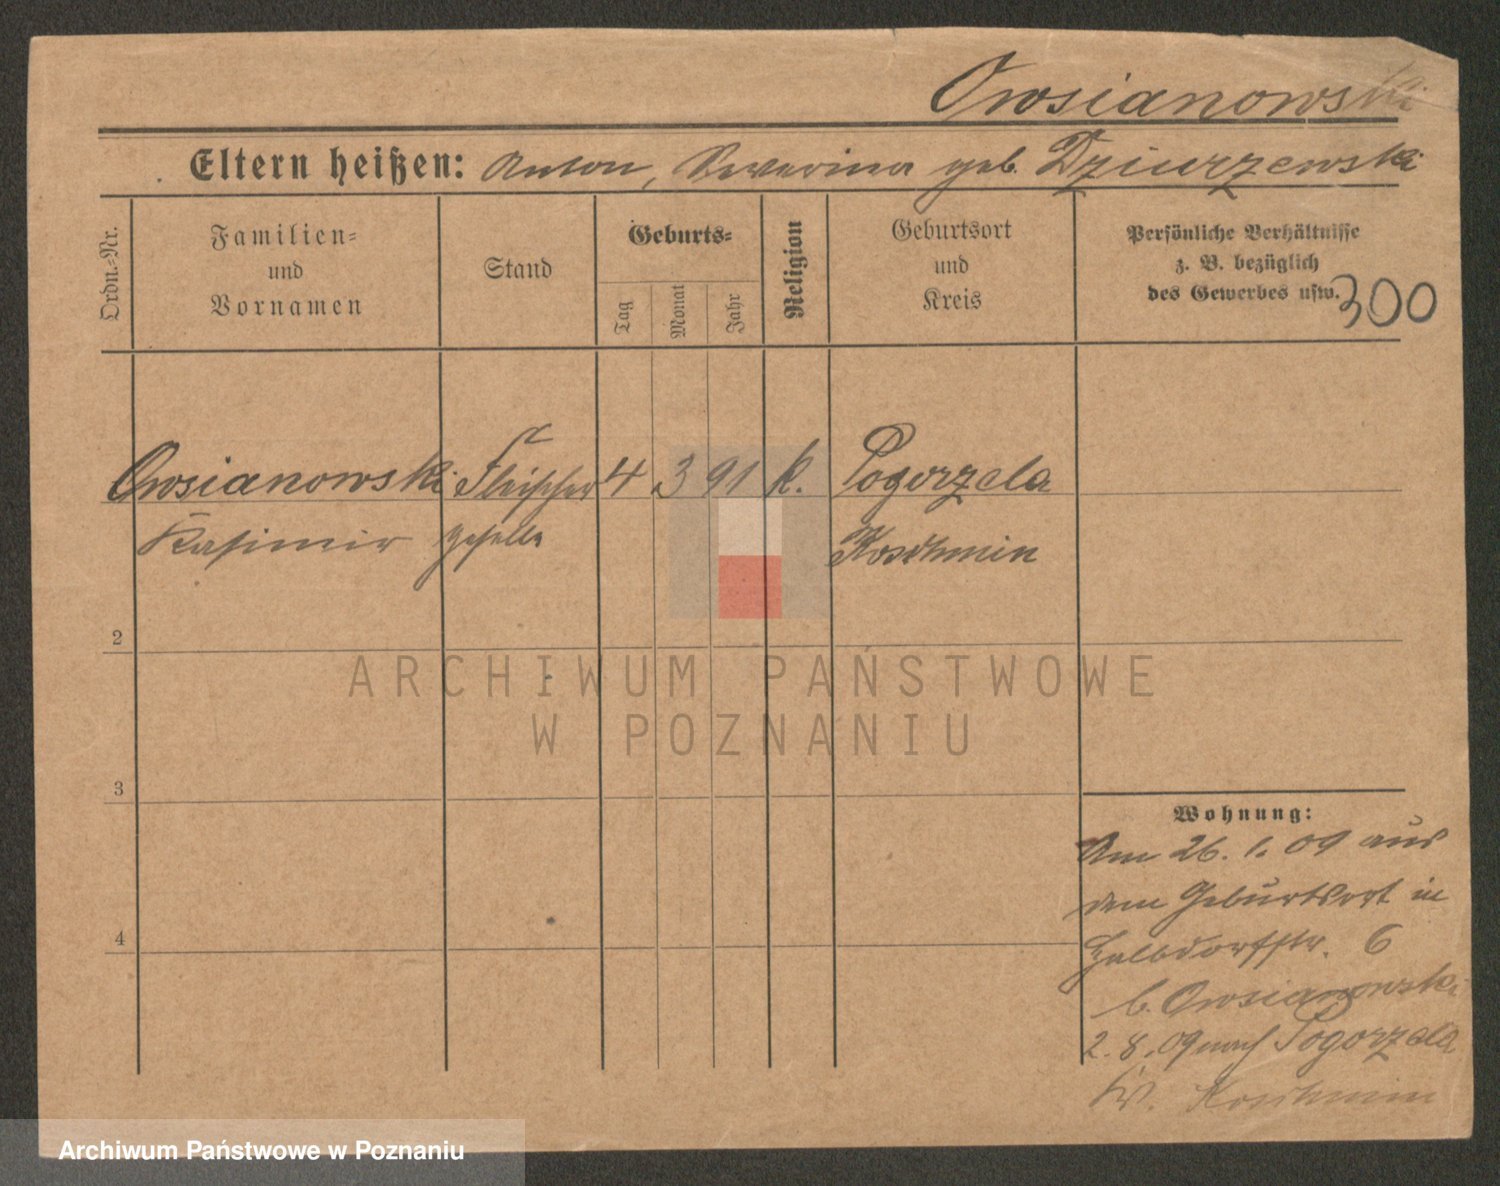 Owsianowski
Eltern heißen: Anton, Severina geb. Dziurzewski
Ordn.-Nr.
Familien-
und
Vornamen
Stand
Geburts-
Tag
Monat
Jahr
Religion
Geburtsort
und
Kreis
Persönliche Verhältnisse
z. B. bezüglich
des Gewerbes usw.
300
Owsianowski Fleischer 4 3 91 k. Pogorzela
Kasimir geselle Koschmin
2
3
4
Wohnung:
Am 26. 1. 09 aus
dem Geburtsort in
Halbdorfstr. 6
b. Owsianowski
2. 8. 09 nach Pogorzela
Kr. Koschmin
ARCHIWUM PAŃSTWOWE
W POZNANIU
Archiwum Państwowe w Poznaniu